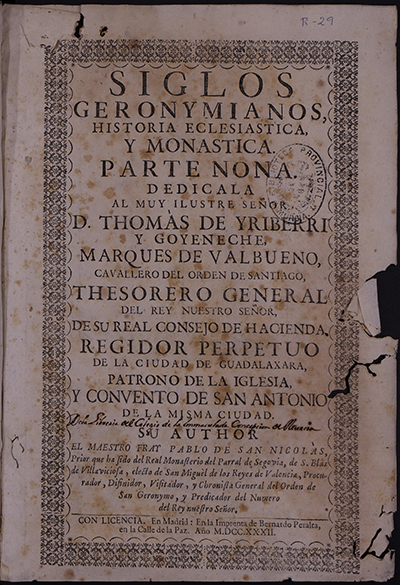 R-29
SIGLOS
GERONYMIANOS,
HISTORIA ECLESIASTICA,
Y MONASTICA.
PARTE NONA.
DEDICALA
AL MUY ILUSTRE SEÑOR
D. THOMÁS DE YRIBERRI
Y GOYENECHE,
MARQUES DE VALBUENO,
CAVALLERO DEL ORDEN DE SANTIAGO,
THESORERO GENERAL
DEL REY NUESTRO SEÑOR,
DE SU REAL CONSEJO DE HACIENDA,
REGIDOR PERPETUO
DE LA CIUDAD DE GUADALAXARA,
PATRONO DE LA IGLESIA,
Y CONVENTO DE SAN ANTONIO
DE LA MISMA CIUDAD.
De la Libreria del Colegio de la Immaculada Concepcion de
SU AUTHOR
EL MAESTRO FRAY PABLO DE SAN NICOLAS,
Prior que ha sido del Real Monasterio del Parral de Segovia, de S. Blàs
de Villaviciosa, electo de San Miguèl de los Reyes de Valencia, Procu-
rador, Difinidor, Visitador, y Chronista General del Orden de
San Geronymo, y Predicador del Numero
del Rey nuestro Señor.
CON LICENCIA. En Madrid: En la Imprenta de Bernardo Peralta,
en la Calle de la Paz. Año M.DCC.XXXII.